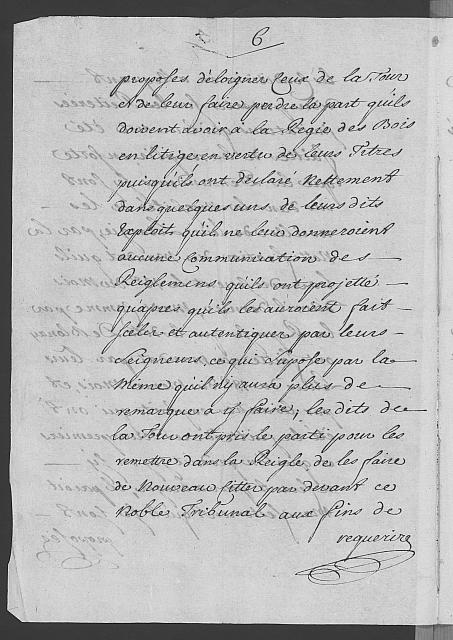 6
proposes d'éloigner Ceux de La Tour
et de leur faire perdre la part qu'ils
doivent avoir à la Regie des Bois
en litige, en vertu de leurs Titres
puisqu'ils ont déclaré Nettement
dans quelques uns de leurs dits
Exploits qu'il ne leur donneroient
aucune Communication des
Reiglemens qu'ils ont projetté
qu'apres qu'ils les auroient fait
sceler et autentiquer par leurs
Seigneurs, ce qui supose par la
même qu'il n'y aura plus de
remarque à y faire; les dits de
la Tour ont pris le parti pour les
remettre dans la Reigle de les faire
de Nouveau Citter par devant ce
Noble Tribunal aux fins de
requerire